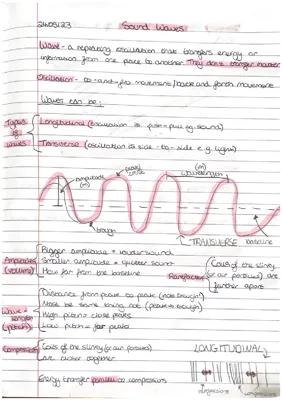 Sound Waves
Wave - a repeating oscillation that transfers energy or
information from one place to another. They don't transfer matter
Oscillation - to-and-fro movement / back and forth movement
Waves can be:
Types of waves
Longitudinal (oscillation is push-pull eg. sound)
Transverse (oscillation is side-to-side e.g. light)
amplitude (m)
(m) wavelength
trough
TRANSVERSE
baseline
Amplitude (volume)
Bigger amplitude = louder sound
Smaller amplitude = quieter sound
How far from the baseline
Rarefaction
Coils of the slinky
(or air particles) are
further apart
Wave length (pitch)
Distance from to peak (not trough)
Must be same thing not (peak → trough)
High pitch = close peaks
Low pitch = far peaks
Compression
Coils of the slinky (or air particles)
are closer together
LONGITUDINAL
Energy transfer parallel to compressions